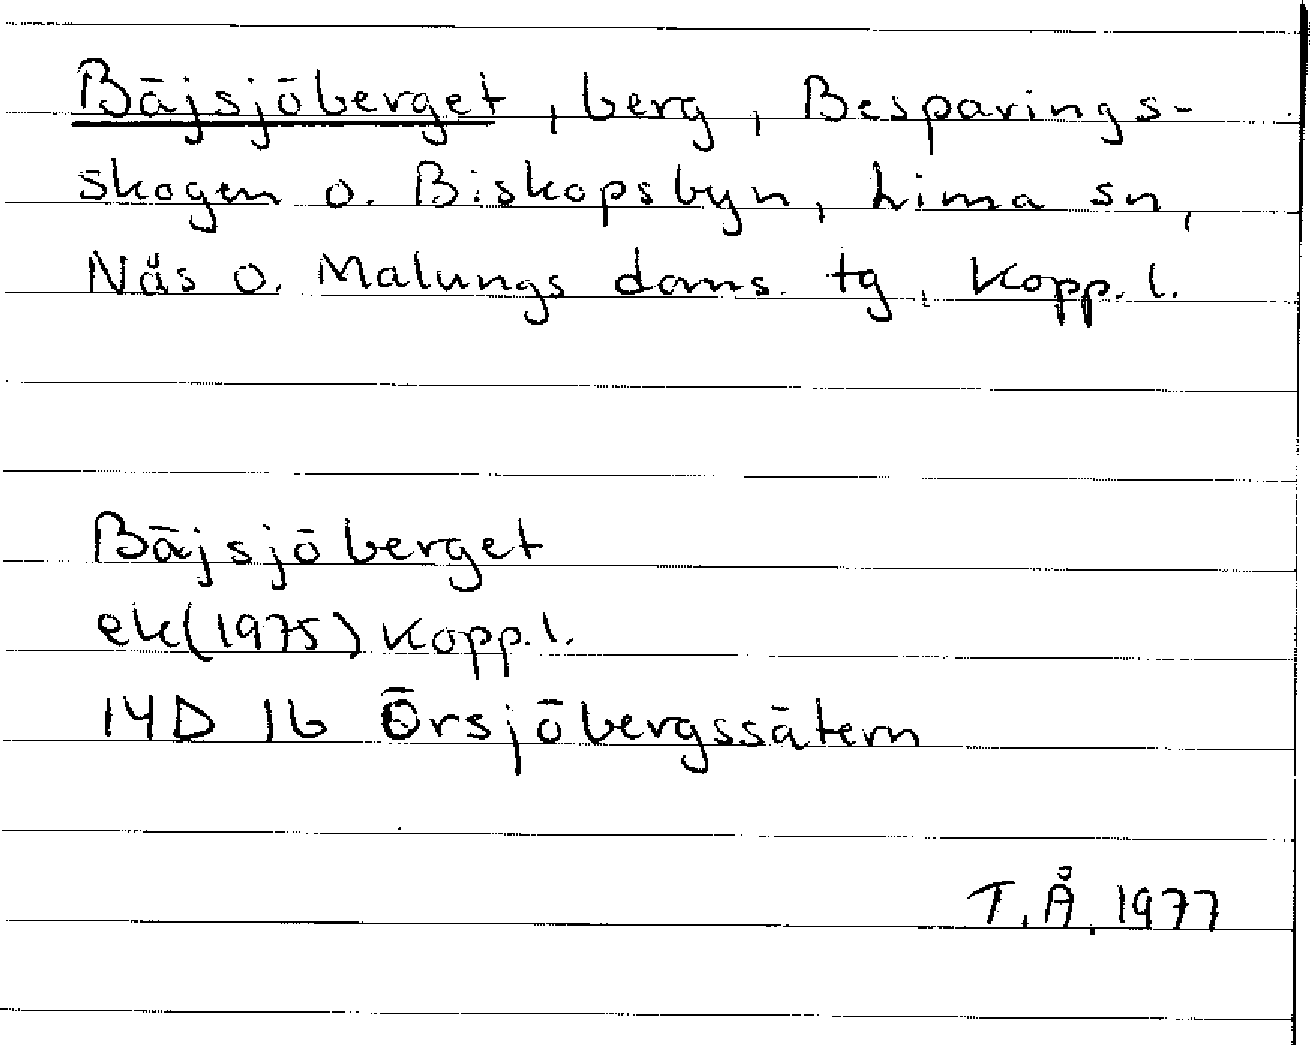 Bäjsjöberget, berg, Besparings-
skogen o. Biskopsbyn, Lima sn,
Näs o. Malungs doms. tg, Kopp. l.
Bäjsjöberget
ek (1975) Kopp. l.
14D 1b Örsjöbergssätern
T. Å. 1977